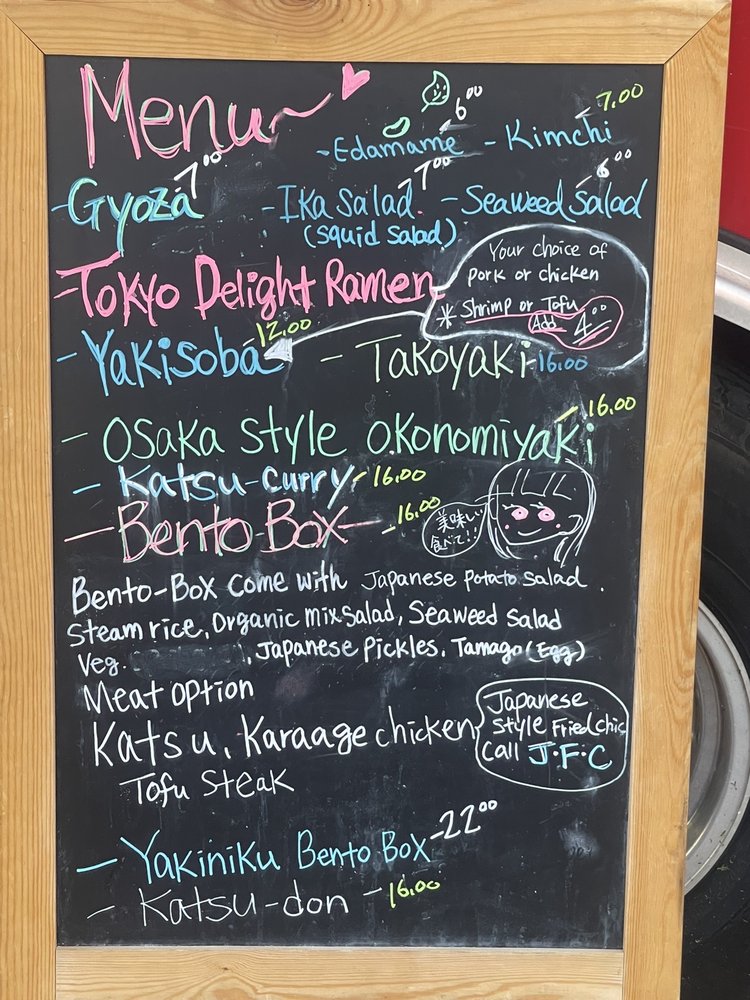 Menu~
6.00
7.00
- Edamame - Kimchi
7.00
7.00
6.00
- Gyoza - Ika Salad - Seaweed Salad
(Squid Salad)
- Tokyo Delight Ramen
Your choice of
Pork or chicken
* Shrimp or Tofu
Add 4.00
12.00
- Yakisoba - Takoyaki - 16.00
- 16.00
- Osaka Style Okonomiyaki
- Katsu-Curry - 16.00
- Bento-Box - 16.00
美味しい
食べて!!
Bento-Box Come with Japanese Potato Salad.
Steam rice, Organic mix Salad, Seaweed Salad
Veg. , Japanese Pickles, Tamago (Egg)
Meat option
Katsu, Karaage chicken
Japanese
Style Fried Chic
Call J.F.C
Tofu Steak
- Yakiniku Bento Box - 22.00
- Katsu-don - 16.00